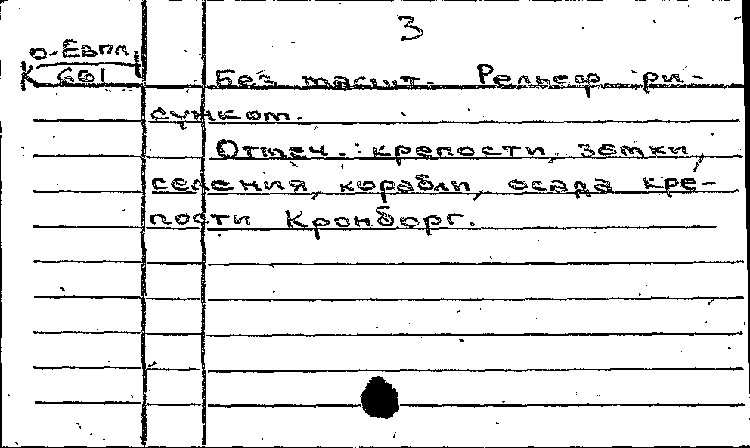 3
О-Евпл
К 601
Без масшт. Рельеф ри-
сунком.
Отмеч.: крепости, замки,
селения, корабли, осада кре-
пости Кронборг.